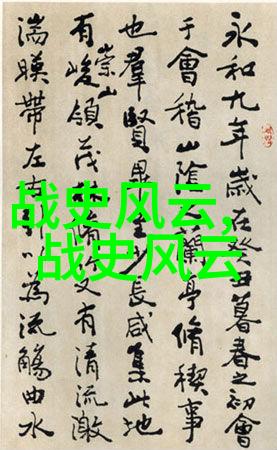 永和九年歲在癸丑暮春之初會
于會稽山陰之蘭亭脩稧事
也羣賢畢至少長咸集此地
有崇山峻領茂林脩竹又有清流激
湍暎帶左右引以為流觴曲水
战史风云,
战史风云